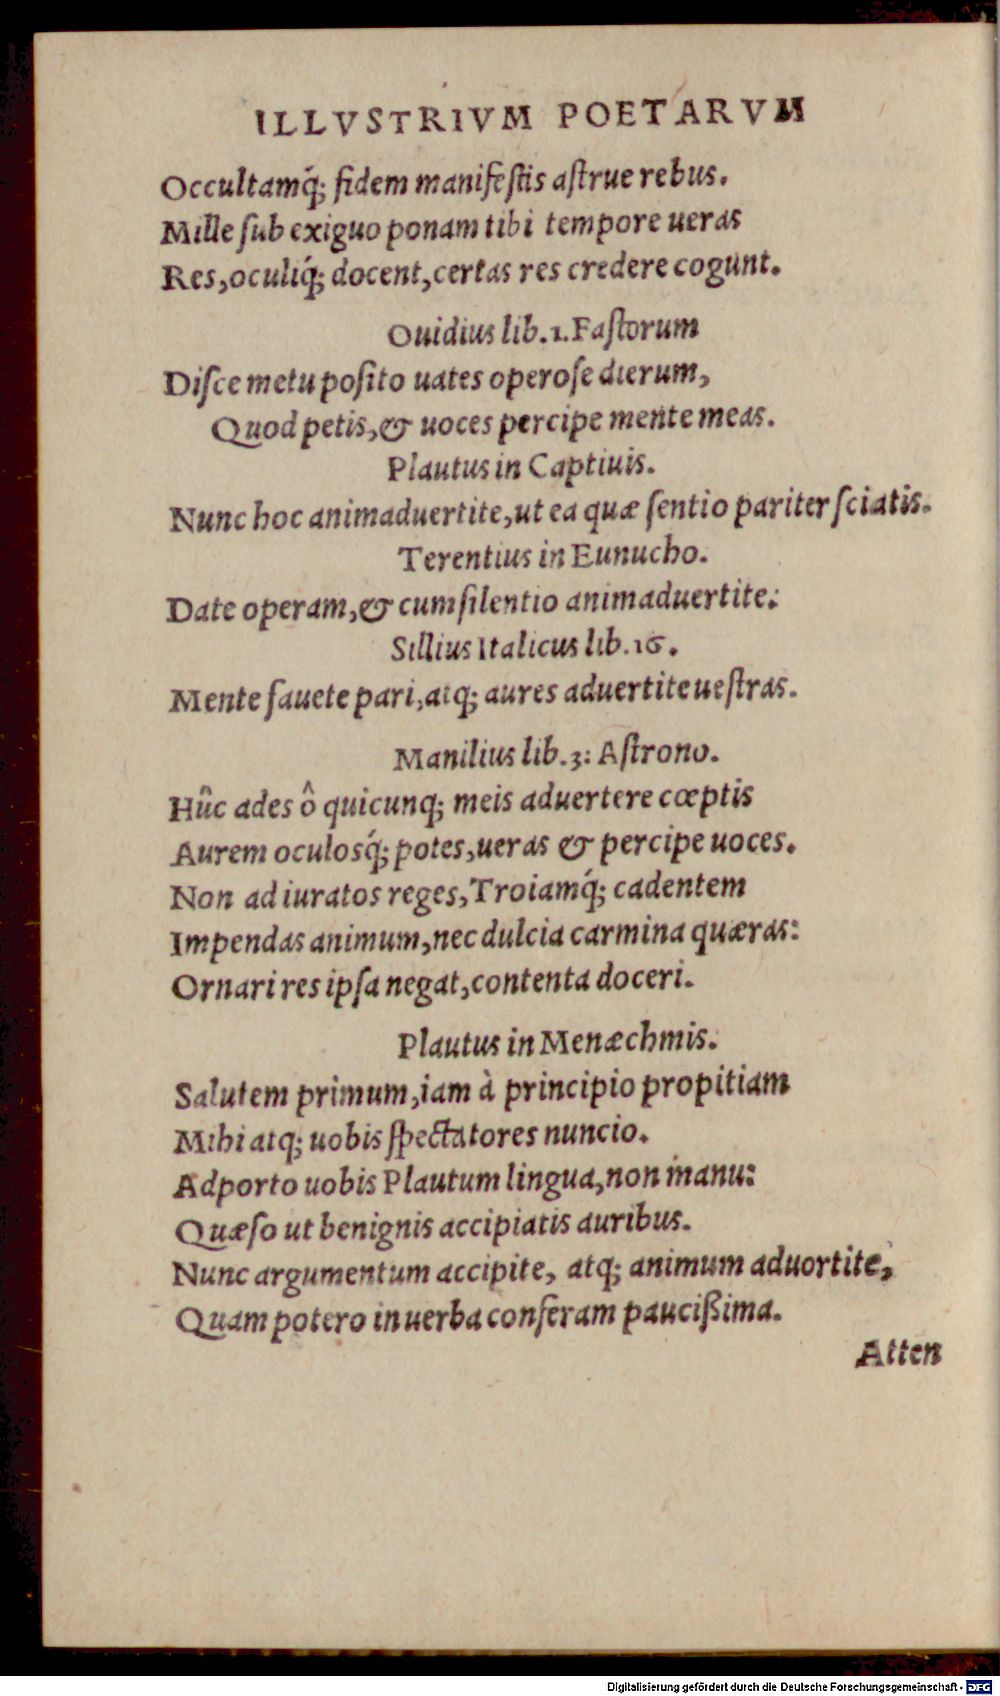 ILLVSTRIVM POETARVM
Occultamq́; fidem manifeſtis aſtrue rebus.
Mille ſub exiguo ponam tibi tempore ueras
Res, oculiq́; docent, certas res credere cogunt.
Ouidius lib. 1. Faſtorum
Diſce metu poſito uates operoſe dierum,
Quod petis, & uoces percipe mente meas.
Plautus in Captiuis.
Nunc hoc animaduertite, ut ea quæ ſentio pariter ſciatis.
Terentius in Eunucho.
Date operam, & cum ſilentio animaduertite:
Sillius Italicus lib. 16.
Mente fauete pari, atq; aures aduertite ueſtras.
Manilius lib. 3: Aſtrono.
Hûc ades ô quicunq; meis aduertere cœptis
Aurem oculosq́; potes, ueras & percipe uoces.
Non ad iuratos reges, Troiamq́; cadentem
Impendas animum, nec dulcia carmina quæras:
Ornari res ipſa negat, contenta doceri.
Plautus in Menæchmis.
Salutem primum, iam à principio propitiam
Mihi atq; uobis ſpectatores nuncio.
Adporto uobis Plautum lingua, non manu:
Quæſo ut benignis accipiatis auribus.
Nunc argumentum accipite, atq; animum aduortite,
Quam potero in uerba conferam pauciſsima.
Atten
Digitalisierung gefördert durch die Deutsche Forschungsgemeinschaft - DFG